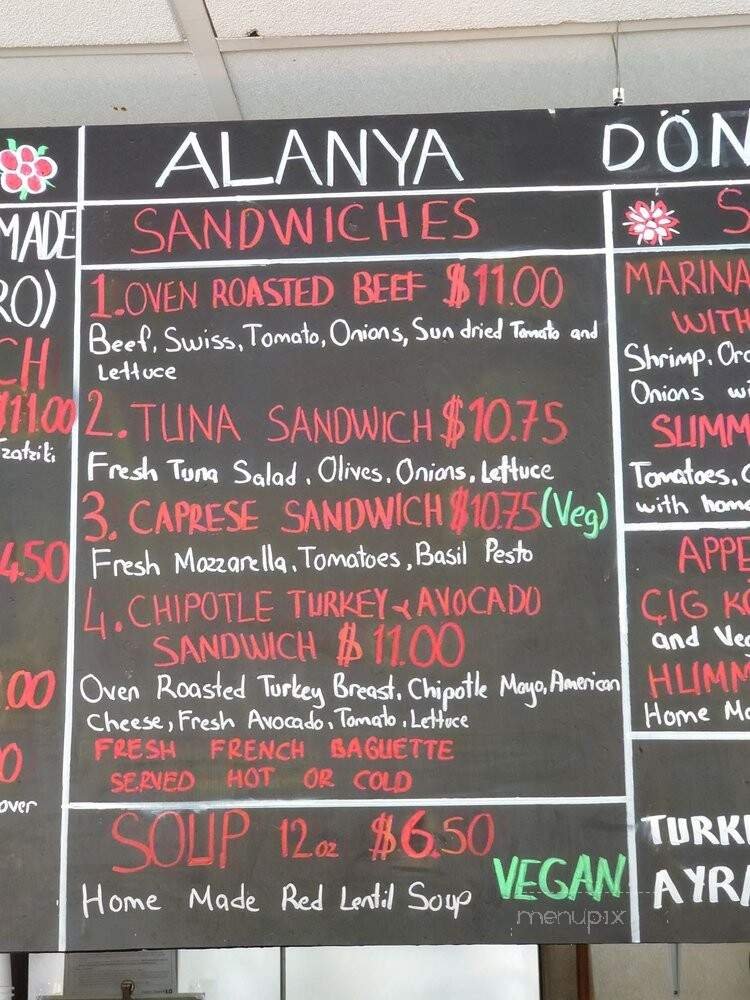 ALANYA DÖN
MADE
RO)
CH
$11.00
Tzatziki
4.50
.00
0
over
SANDWICHES
1. OVEN ROASTED BEEF $11.00
Beef, Swiss, Tomato, Onions, Sun dried Tomato and
Lettuce
2. TUNA SANDWICH $10.75
Fresh Tuna Salad, Olives, Onions, Lettuce
3. CAPRESE SANDWICH $10.75 (Veg)
Fresh Mozzarella, Tomatoes, Basil Pesto
4. CHIPOTLE TURKEY & AVOCADO
SANDWICH $11.00
Oven Roasted Turkey Breast, Chipotle Mayo, American
Cheese, Fresh Avocado, Tomato, Lettuce
FRESH FRENCH BAGUETTE
SERVED HOT OR COLD
SOUP 12oz $6.50
VEGAN
Home Made Red Lentil Soup
S
MARINA
WITH
Shrimp, Ora
Onions wi
SUMM
Tomatoes, C
with home
APPE
ÇIG KÖ
and Veg
HUMM
Home Ma
TURKI
AYRA
menupix